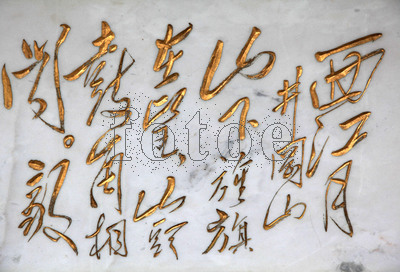 西江月
井岡山
山下旌旗
在望山頭
鼓角相
聞。敵
fotoe